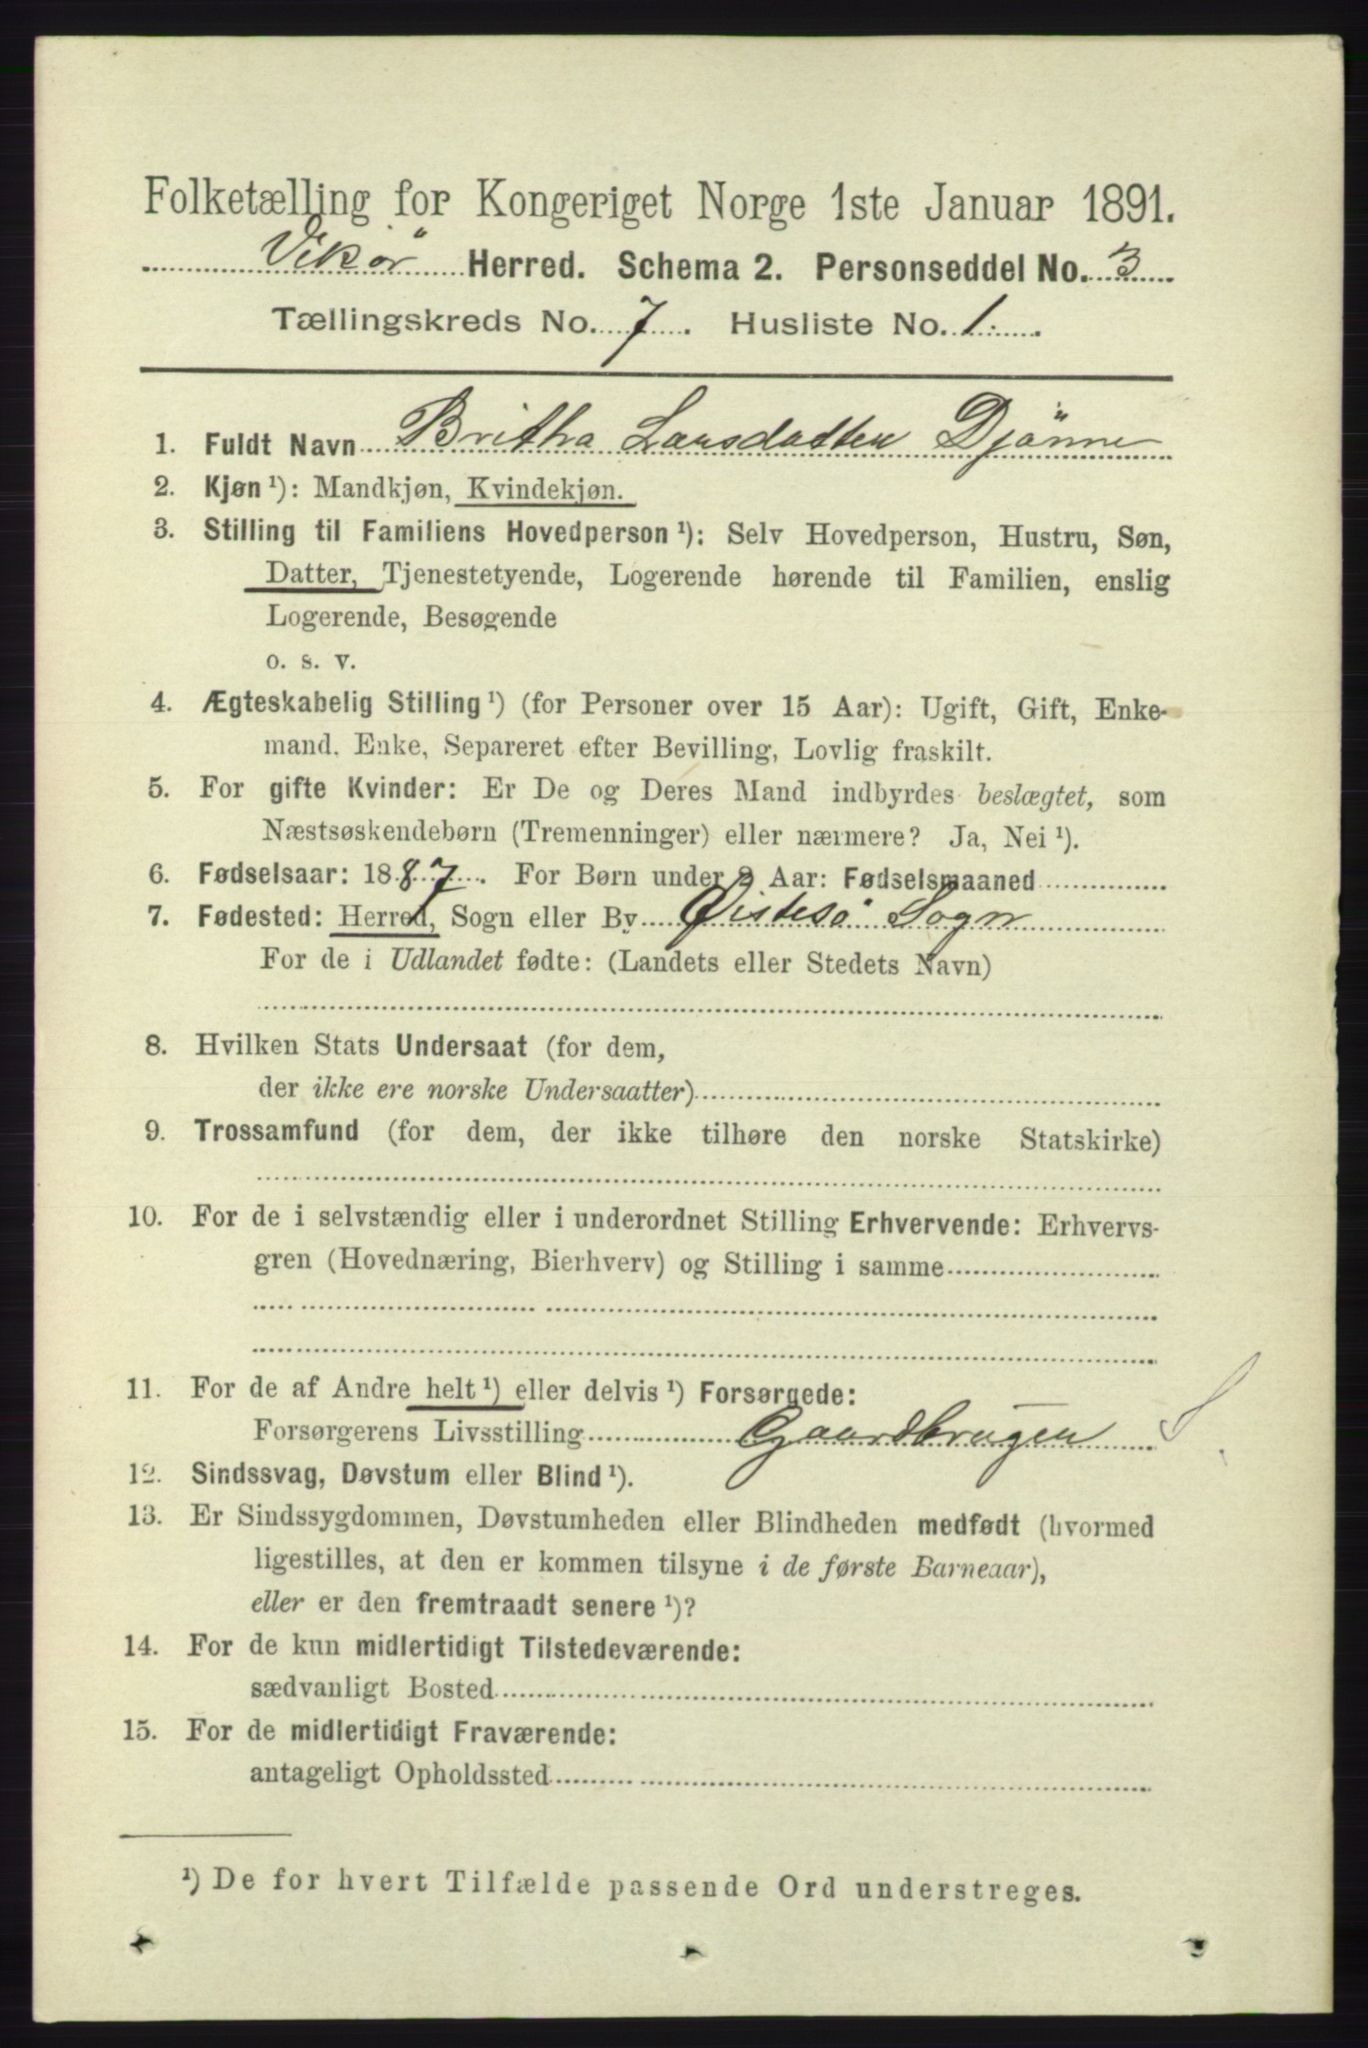 Folketælling for Kongeriget Norge 1ste Januar 1891.
Vikør Herred. Schema 2. Personseddel No. 3
Tællingskreds No. 7. Husliste No. 1.
1. Fuldt Navn Britha Larsdatter Djönne
2. Kjøn ¹): Mandkjøn, Kvindekjøn.
3. Stilling til Familiens Hovedperson ¹): Selv Hovedperson, Hustru, Søn,
Datter, Tjenestetyende, Logerende hørende til Familien, enslig
Logerende, Besøgende
o. s. v.
4. Ægteskabelig Stilling ¹) (for Personer over 15 Aar): Ugift, Gift, Enke-
mand, Enke, Separeret efter Bevilling, Lovlig fraskilt.
5. For gifte Kvinder: Er De og Deres Mand indbyrdes beslægtet, som
Næstsøskendebørn (Tremenninger) eller nærmere? Ja, Nei ¹).
6. Fødselsaar: 1887. For Børn under 2 Aar: Fødselsmaaned
7. Fødested: Herred, Sogn eller By Øistesö Sogn
For de i Udlandet fødte: (Landets eller Stedets Navn)
8. Hvilken Stats Undersaat (for dem,
der ikke ere norske Undersaatter)
9. Trossamfund (for dem, der ikke tilhøre den norske Statskirke)
10. For de i selvstændig eller i underordnet Stilling Erhvervende: Erhvervs-
gren (Hovednæring, Bierhverv) og Stilling i samme
11. For de af Andre helt ¹) eller delvis ¹) Forsørgede:
Forsørgerens Livsstilling Gaardbruger S.
12. Sindssvag, Døvstum eller Blind ¹).
13. Er Sindssygdommen, Døvstumheden eller Blindheden medfødt (hvormed
ligestilles, at den er kommen tilsyne i de første Barneaar),
eller er den fremtraadt senere ¹)?
14. For de kun midlertidigt Tilstedeværende:
sædvanligt Bosted
15. For de midlertidigt Fraværende:
antageligt Opholdssted
¹) De for hvert Tilfælde passende Ord understreges.